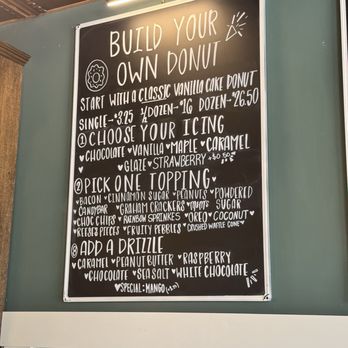 BUILD YOUR
OWN DONUT
START WITH A CLASSIC VANILLA CAKE DONUT
SINGLE-$3.25 ½ DOZEN-$16 DOZEN-$26.50
① CHOOSE YOUR ICING
♥CHOCOLATE ♥VANILLA ♥MAPLE ♥CARAMEL
♥GLAZE ♥STRAWBERRY
② PICK ONE TOPPING
♥BACON ♥CINNAMON SUGAR ♥PEANUTS ♥POWDERED SUGAR
♥CANDYBAR ♥GRAHAM CRACKERS
♥CHOC CHIPS ♥RAINBOW SPRINKES ♥OREO ♥COCONUT♥
♥REESE'S PIECES ♥FRUITY PEBBLES ♥CRUSHED WAFFLE CONE♥
③ ADD A DRIZZLE
♥CARAMEL ♥PEANUT BUTTER ♥RASPBERRY
♥CHOCOLATE ♥SEA SALT ♥WHITE CHOCOLATE
♥SPECIAL: MANGO